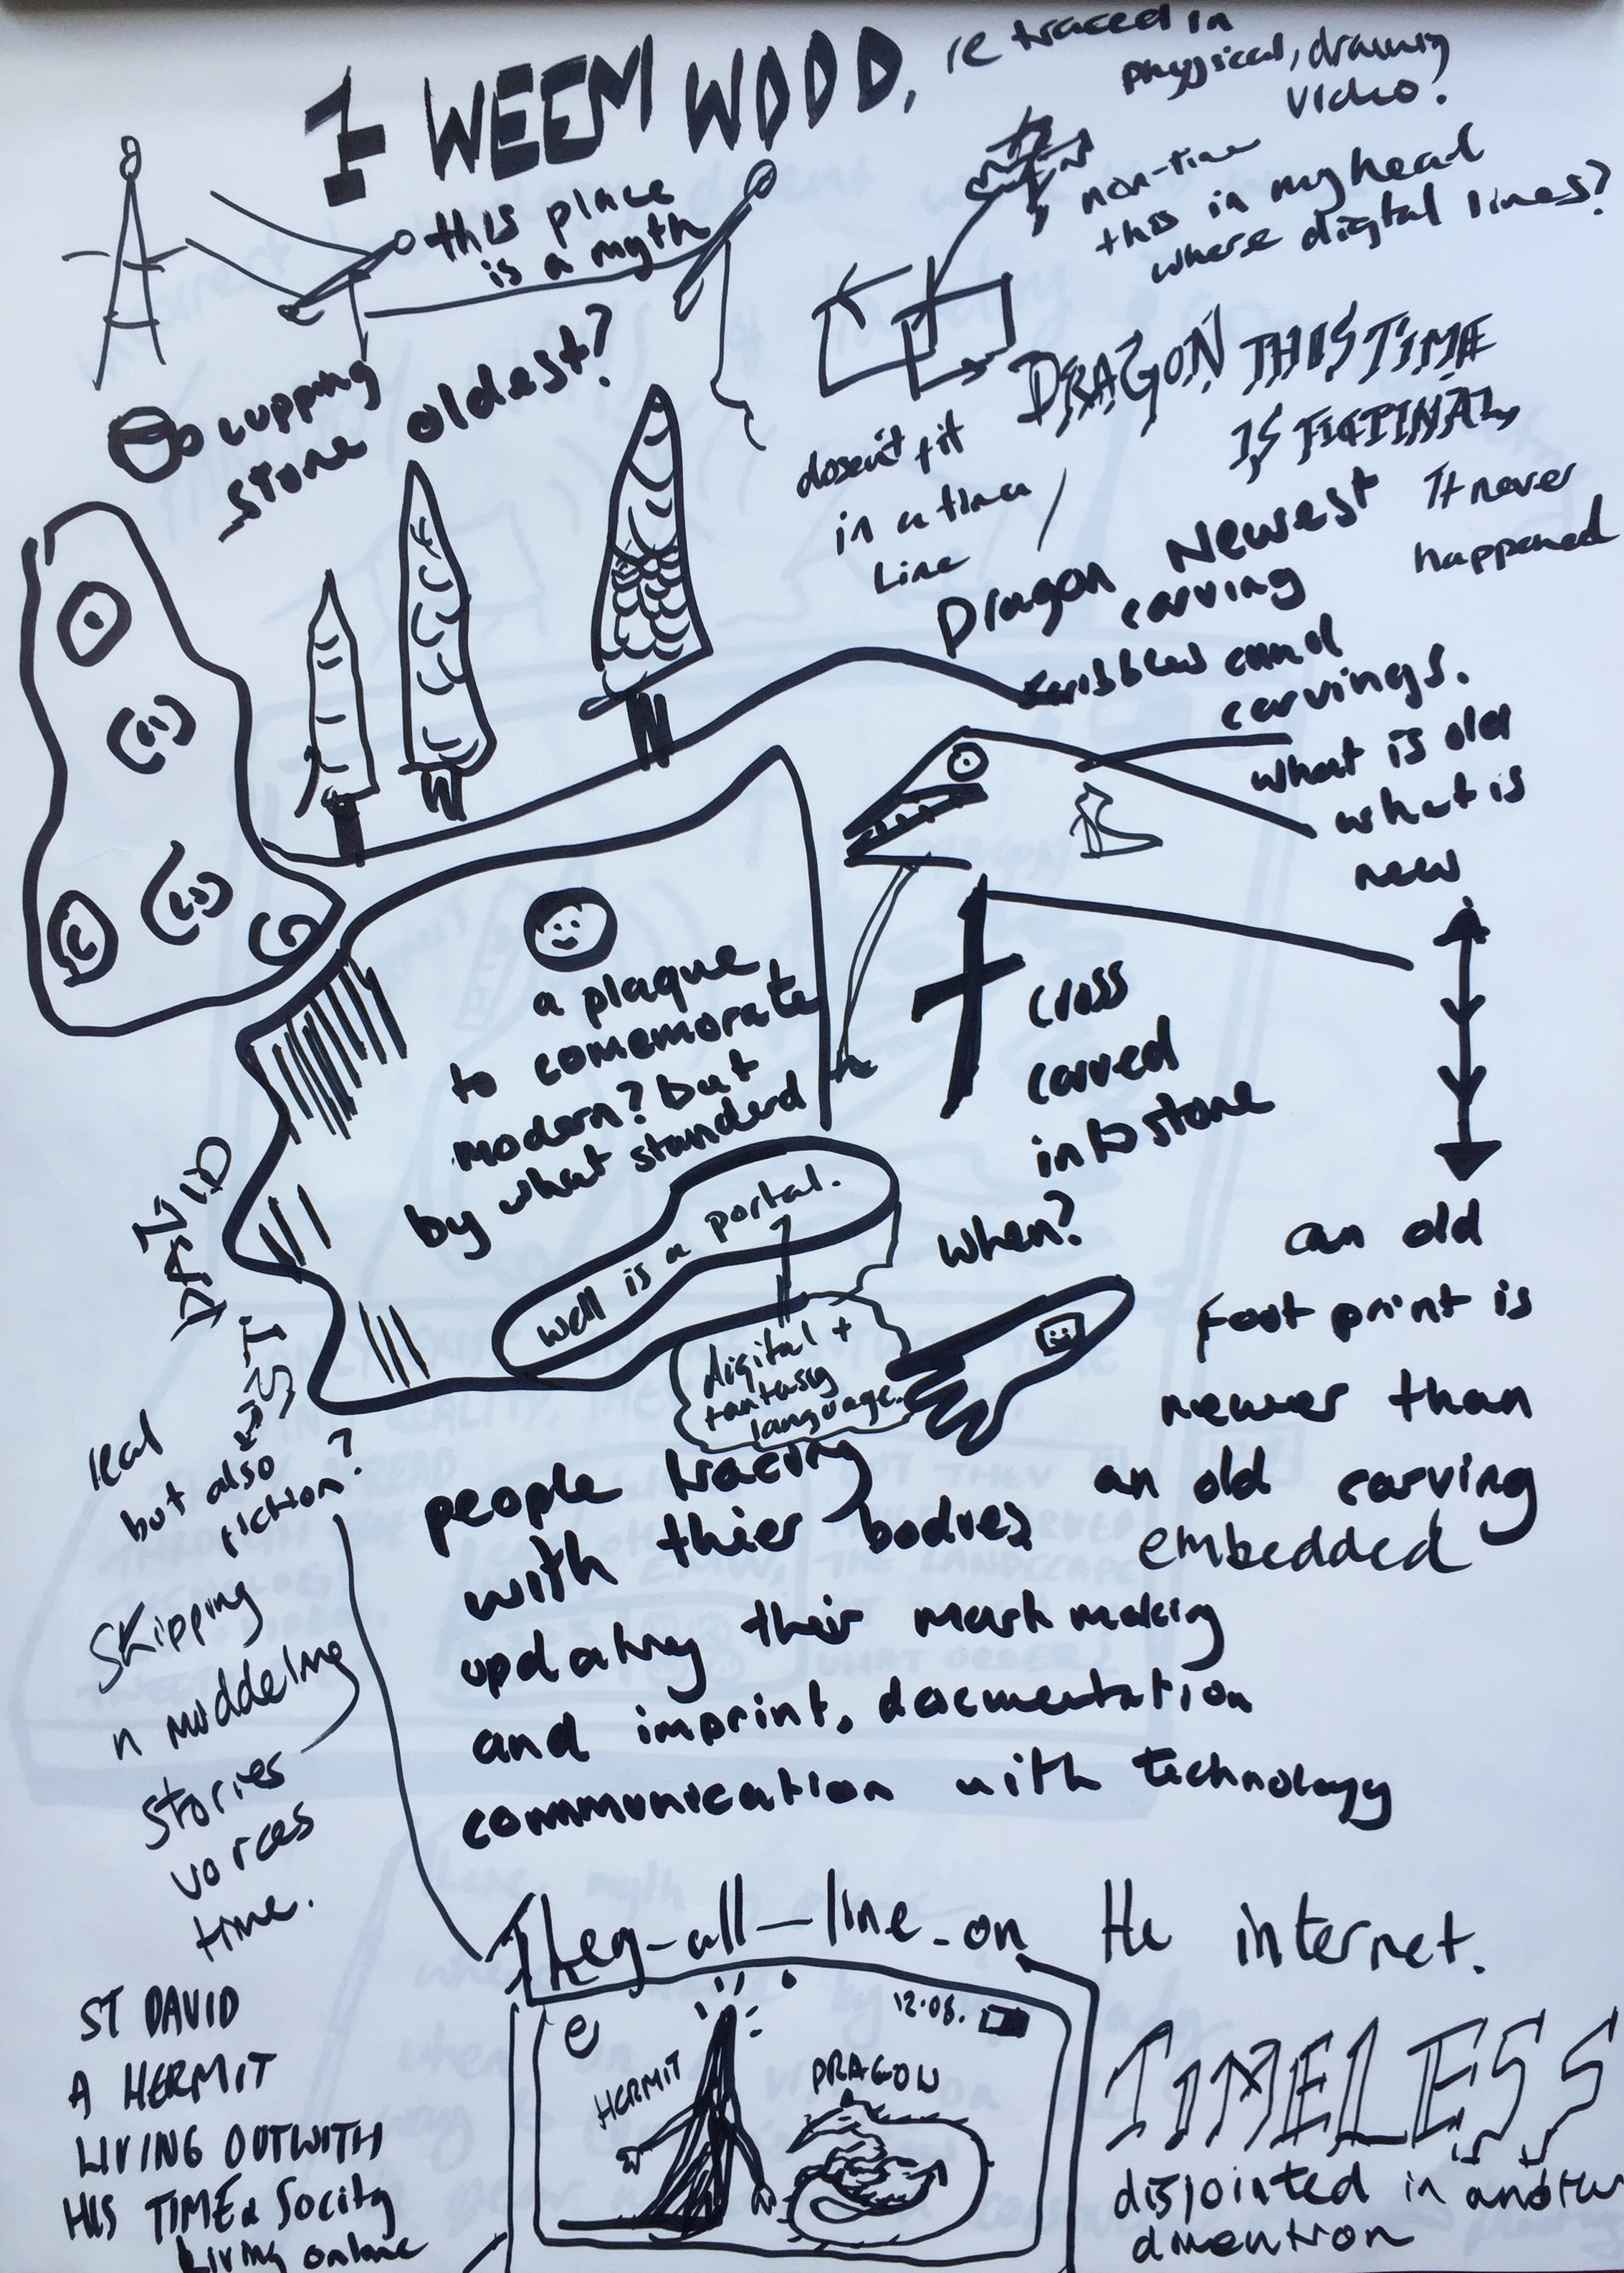 1 WEEM WOOD,
retraced in
physical, drawing
video?
non-time
this in my head
where digital lines?
this place
is a myth
cupping
stone oldest?
DRAGON THIS TIME
IS FICTINAL,
It never
happened
dosen't fit
in a time
Line
Dragon Newest
carving
scribbles and
carvings.
what is old
what is
new
a plaque
to comemorate
modern? but
by what standerd
cross
carved
into stone
when?
well is a portal.
digital +
fantasy
language.
an old
foot print is
newer than
an old carving
embedded
DAVID
ST
real
but also
fiction?
people tracing
with thier bodies
updating their mark making
and imprint, documentation
communication with technology
Skipping
n muddeling
stories
voices
time.
They-all-line-on the internet.
ST DAVID
A HERMIT
LIVING OUTWITH
HIS TIME & Socity
Living online
e
12:08.
HERMIT
DRAGON
TIMELESS
disjointed in another
dimention